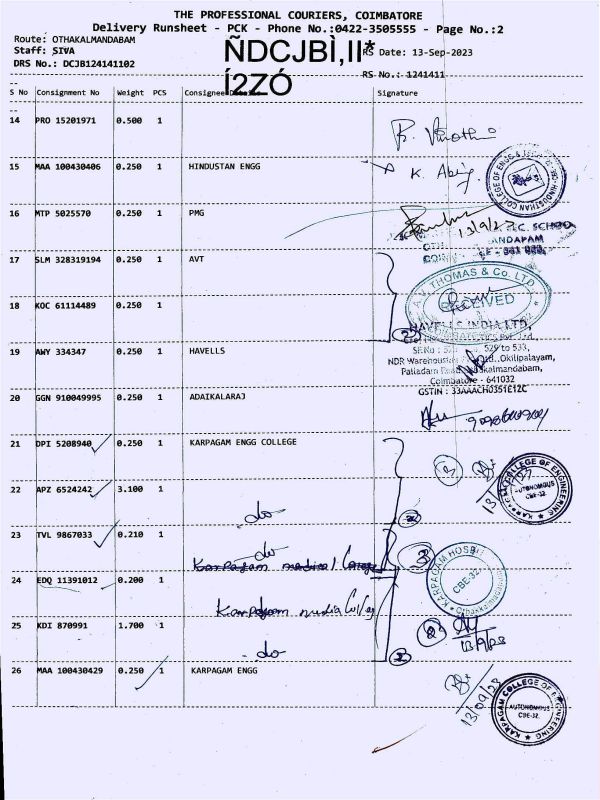 THE PROFESSIONAL COURIERS, COIMBATORE
Delivery Runsheet - PCK - Phone No.:0422-3505555 - Page No.:2
Route: OTHAKALMANDABAM
Staff: SIVA
RS Date: 13-Sep-2023
DRS No.: DCJB124141102
ÑDCJBÌ,II*
Í2ZÓ
RS No.: 1241411
S No Consignment No Weight PCS Consignee Signature
14 PRO 15201971 0.500 1
15 MAA 100430406 0.250 1 HINDUSTAN ENGG
16 MTP 5025570 0.250 1 PMG
13/9/23
17 SLM 328319194 0.250 1 AVT
A.V. THOMAS & Co. LTD
RECEIVED
18 KOC 61114489 0.250 1
HAVELLS INDIA LTD,
529 to 533,
19 AWY 334347 0.250 1 HAVELLS
Okilipalayam,
Coimbatore - 641032
GSTIN : 33AAACH0351E1ZC
20 GGN 910049995 0.250 1 ADAIKALARAJ
21 DPI 5208940 0.250 1 KARPAGAM ENGG COLLEGE
KARPAGAM COLLEGE OF ENGINEERING
AUTONOMOUS
CBE-32.
22 APZ 6524242 3.100 1
do
23 TVL 9867033 0.210 1
do
Karpagam medical
24 EDQ 11391012 0.200 1
KARPAGAM HOSPITAL
CBE-32
Karpagam
25 KDI 870991 1.700 1
do
13/9/23
26 MAA 100430429 0.250 1 KARPAGAM ENGG
13/09/23
KARPAGAM COLLEGE OF ENGINEERING
AUTONOMOUS
CBE-32.